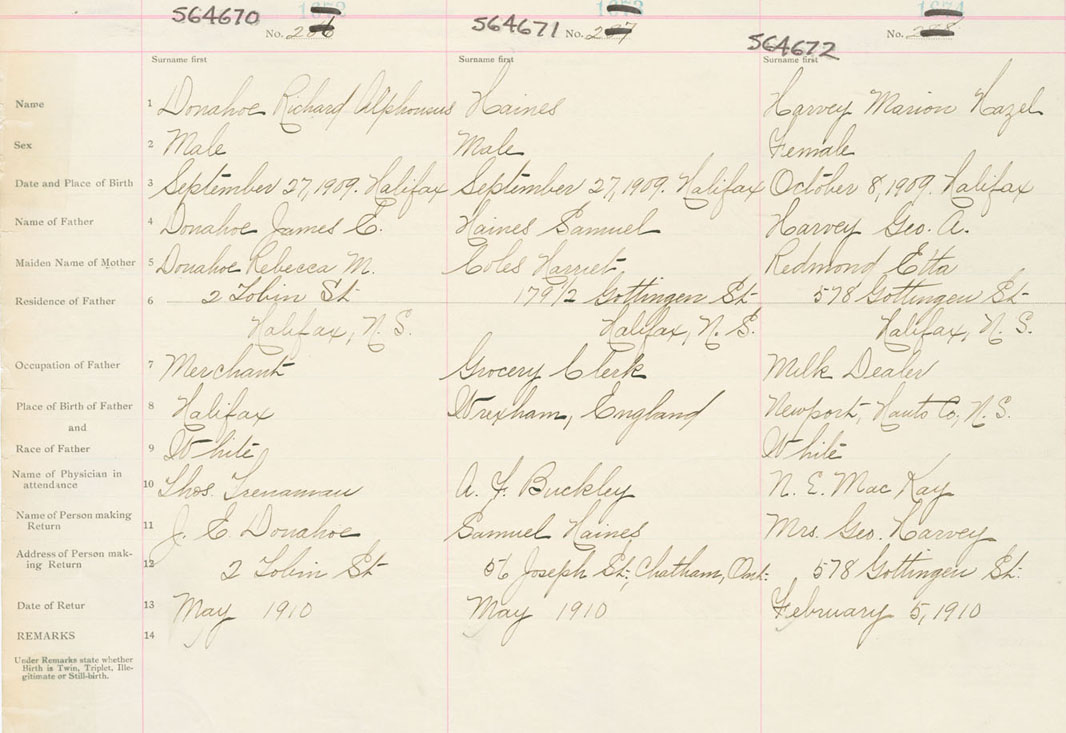 564670 No.
564671 No.
564672 No.
Surname first Surname first Surname first
Name 1 Donahoe Richard Alphonsus Haines Harvey Marion Hazel
Sex 2 Male Male Female
Date and Place of Birth 3 September 27, 1909. Halifax September 27, 1909. Halifax October 8, 1909. Halifax
Name of Father 4 Donahoe James E. Haines Samuel Harvey Geo. A.
Maiden Name of Mother 5 Donahoe Rebecca M. Coles Harriet Redmond Etta
Residence of Father 6 2 Tobin St 179 1/2 Gottingen St 578 Gottingen St
Halifax, N. S. Halifax, N. S. Halifax, N. S.
Occupation of Father 7 Merchant Grocery Clerk Milk Dealer
Place of Birth of Father 8 Halifax Wrexham, England Newport, Hants Co, N. S.
and
Race of Father 9 White White
Name of Physician in attendance 10 Thos. Trenaman A. F. Buckley N. E. Mac Kay
Name of Person making Return 11 J. E. Donahoe Samuel Haines Mrs. Geo. Harvey
Address of Person mak-
ing Return 12 2 Tobin St 56 Joseph St; Chatham, Ont. 578 Gottingen St.
Date of Retur 13 May 1910 May 1910 February 5, 1910
REMARKS 14
Under Remarks state whether
Birth is Twin, Triplet, Ille-
gitimate or Still-birth.